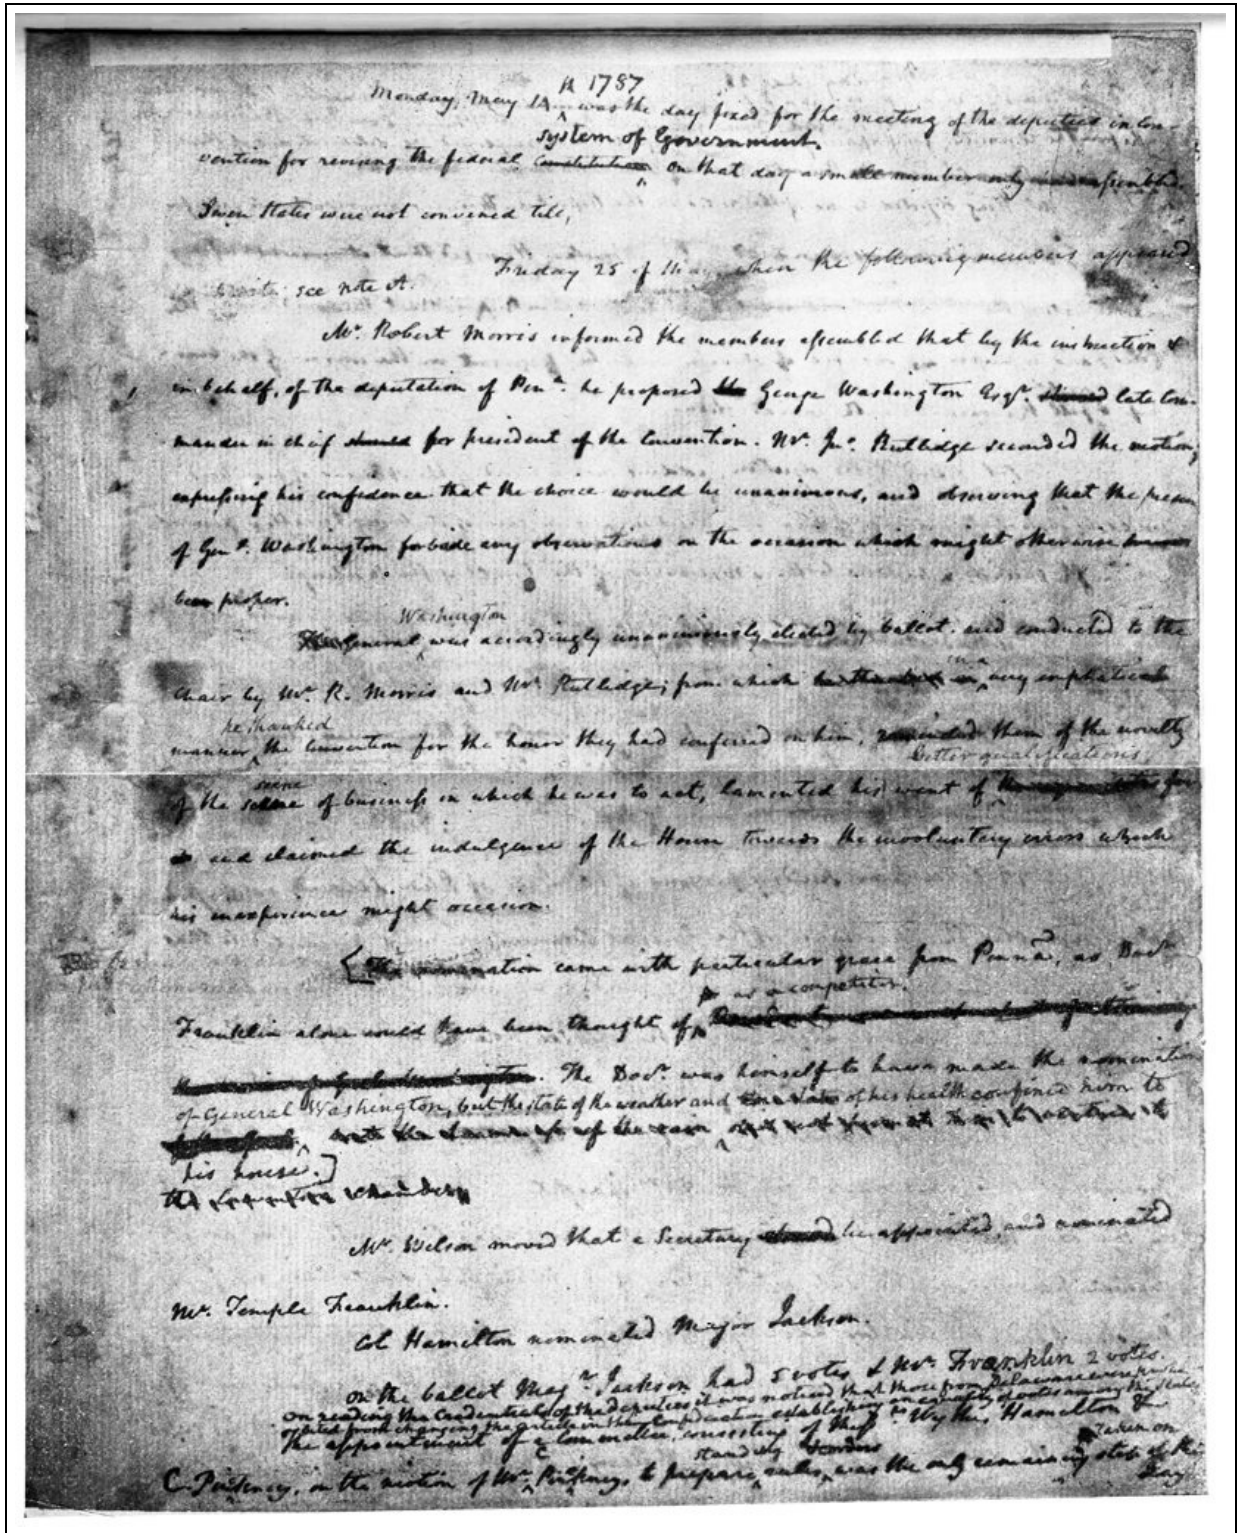 th 1787
Monday, May 14 was the day fixed for the meeting of the deputies in Con-
system of Government.
vention for revising the federal Constitution on that day a small number only assembled.
Seven States were not convened till,
Friday 25 of May, when the following members appeared
see note A.
Mr. Robert Morris informed the members assembled that by the instruction &
in behalf, of the deputation of Pena. he proposed George Washington Esqr. late Com-
mander in chief should for president of the Convention. Mr. Jno. Rutlidge seconded the motion;
expressing his confidence that the choice would be unanimous, and observing that the presence
of Genl. Washington forbade any observations on the occasion which might otherwise
been proper.
Washington
The General was accordingly unanimously elected by ballot, and conducted to the
in a
chair by Mr. R. Morris and Mr. Rutlidge; from which very emphatical
he thanked
manner the Convention for the honor they had conferred on him, reminded them of the novelty
better qualifications,
scene
of the scene of business in which he was to act, lamented his want of
and claimed the indulgence of the House towards the involuntary errors which
his inexperience might occasion.
[The nomination came with particular grace from Penna, as Docr
as a competitor.
Franklin alone would have been thought of
The Docr. was himself to have made the nomination
of General Washington, but the state of the weather and of his health confined him to
his house.]
Mr. Wilson moved that a Secretary be appointed, and nominated
Mr. Temple Franklin.
Col Hamilton nominated Major Jackson.
On the ballot Majr Jackson had 5 votes & Mr. Franklin 2 votes.
On reading the Credentials of the deputies it was noticed that those from Delaware were
from changing the article in the Confederation establishing an equality of votes among the States
the appointment of a Committee, consisting of Messrs Wythe, Hamilton &
standing taken on
C. Pinkney, on the motion of Mr. Pinkney, to prepare rules, was the only remaining step
day